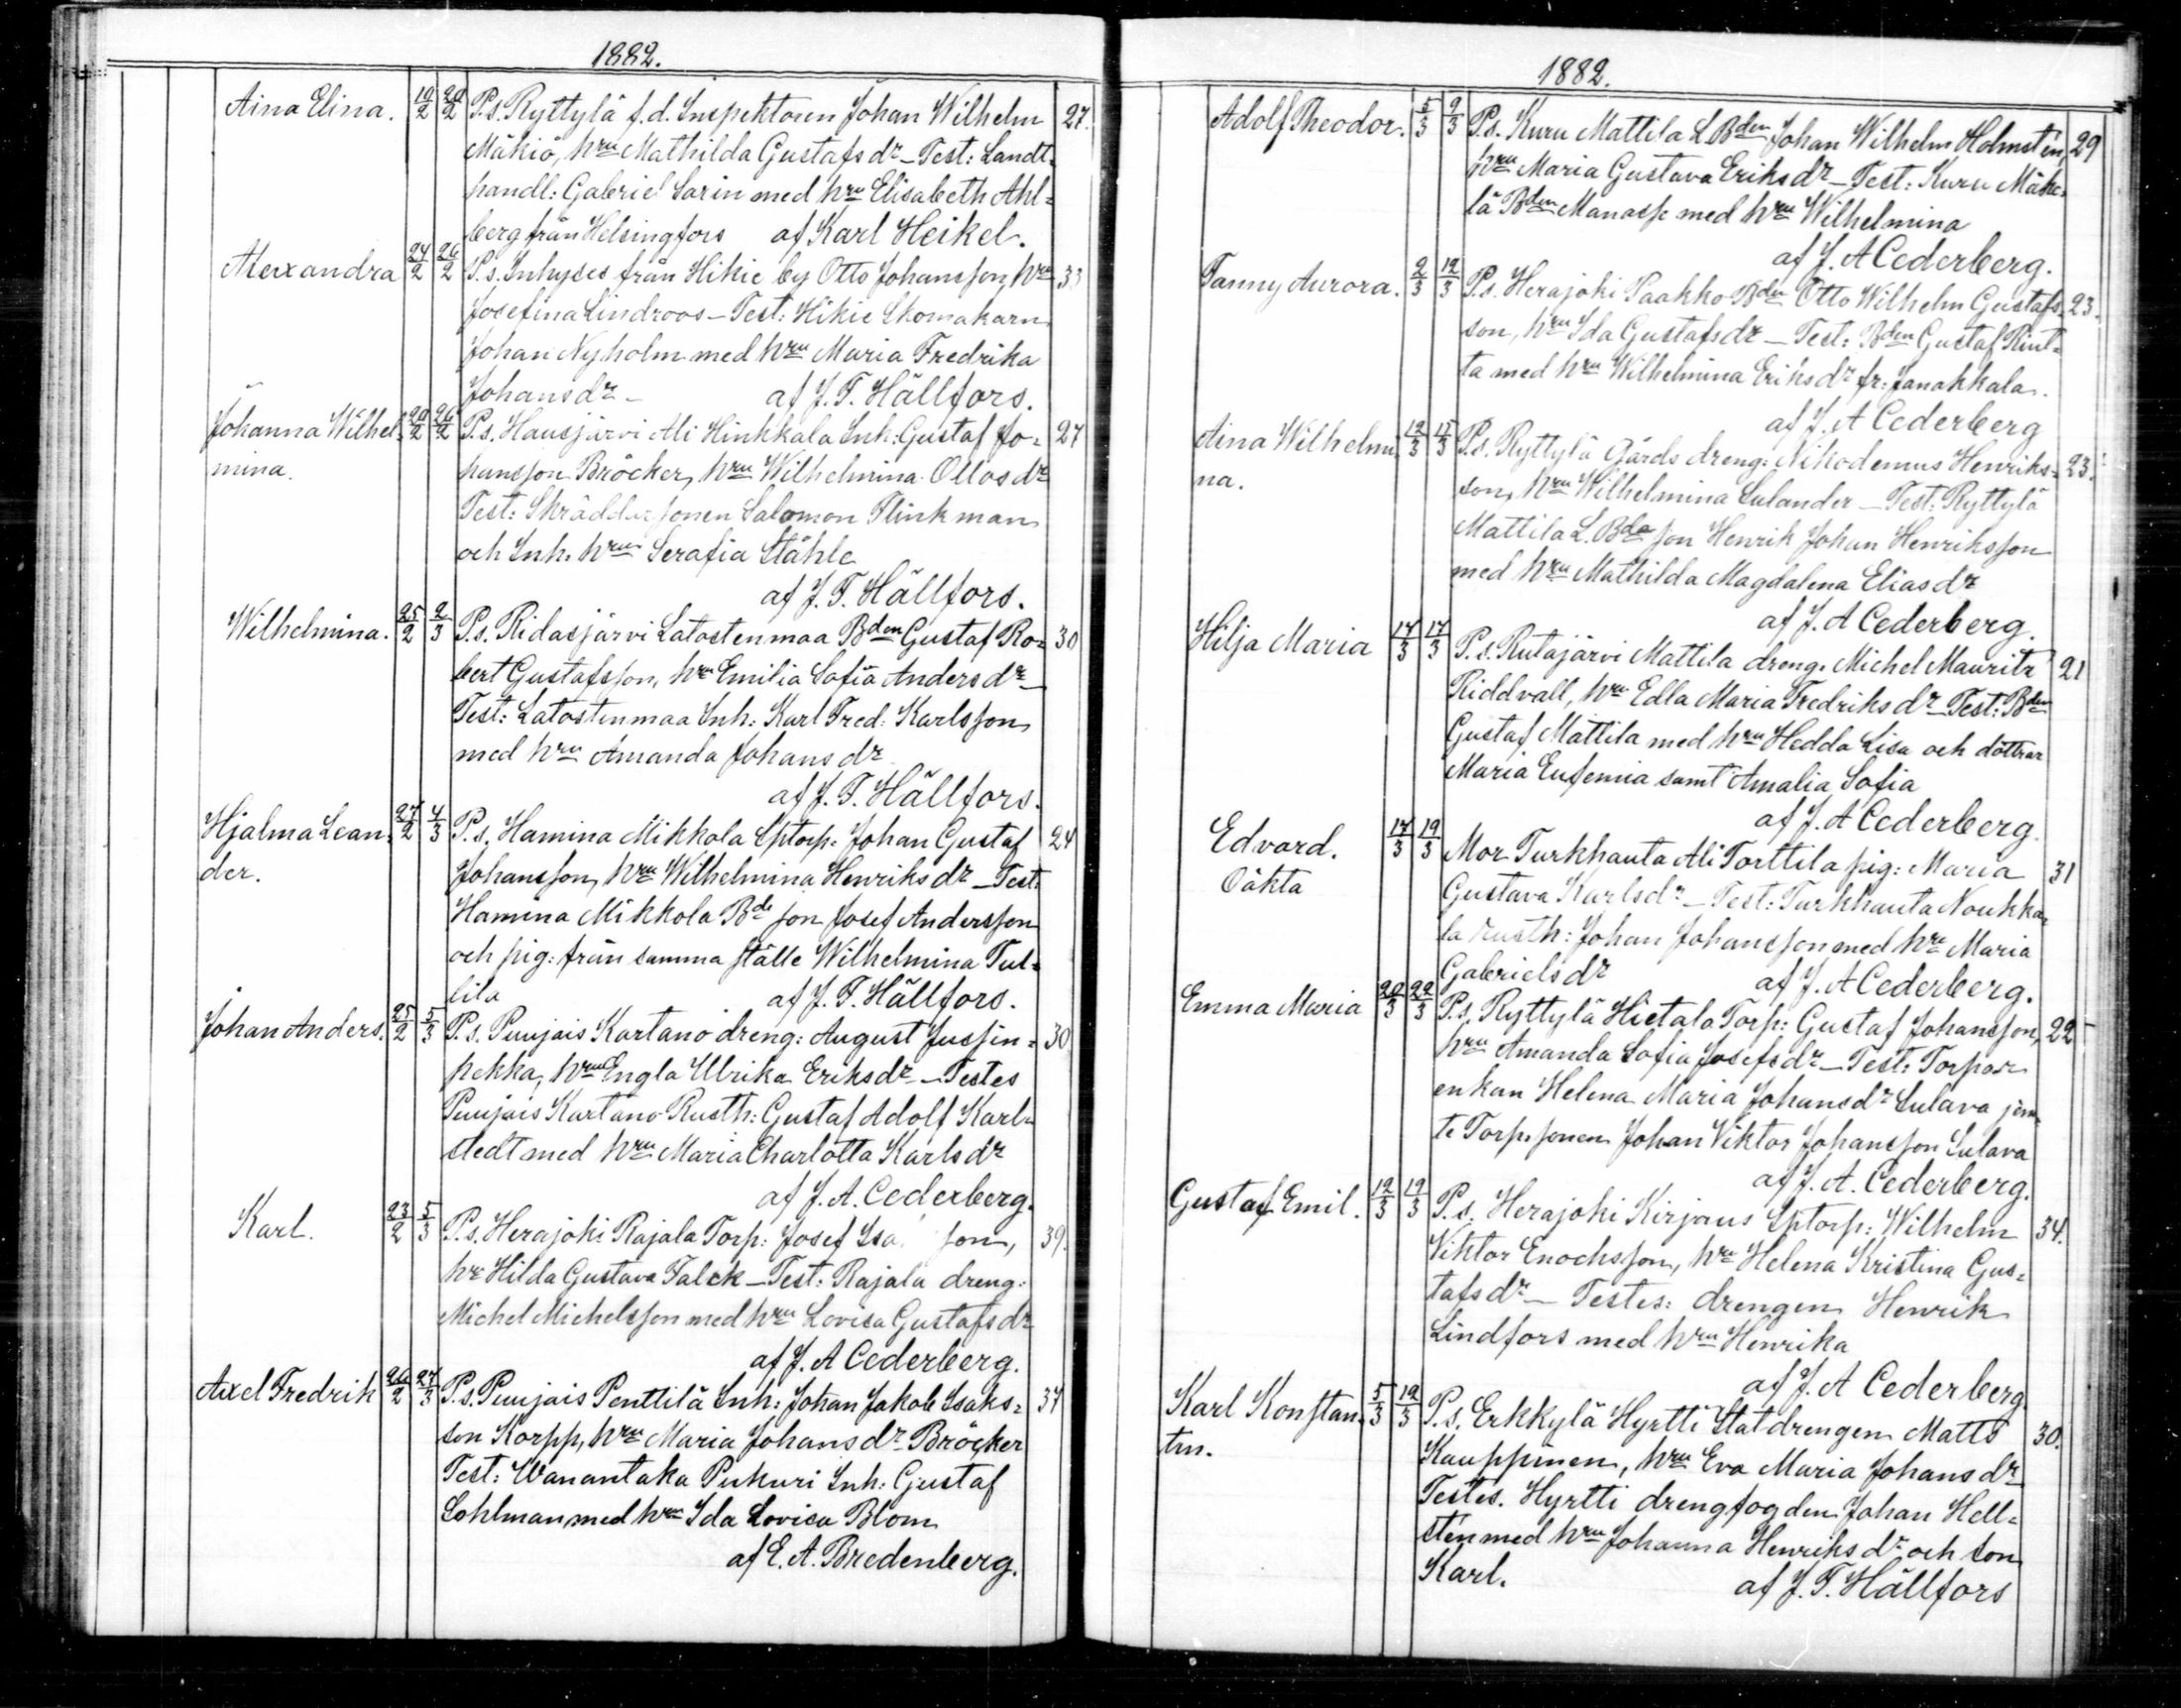 1882.
Aina Elina. 10/2 20/2 P.s. Ryttylä f.d. Inspektoren Johan Wilhelm 27.
Mäkiö, hru Mathilda Gustafs dr - Test: Landt-
handl: Gabriel Sarin med hru Elisabeth Ahl-
berg från Helsingfors af Karl Heikel.
Alexandra 24/2 26/2 P.s. Inhyses från Hikie by Otto Johansson, hru 33
Josefina Lindroos - Test: Hikie Skomakarn
Johan Nyholm med hru Maria Fredrika
Johans dr - af J. F. Hällfors.
Johanna Wilhel- 20/2 26/2 P.s. Hausjärvi Ali Hinkkala Inh: Gustaf Jo- 27
mina. hansson Bröcker, hru Wilhelmina Ollas dr
Test: Skräddarsonen Salomon Flinkman
och Inh. hru Serafia Ståhle
af J. F. Hällfors.
Wilhelmina. 25/2 2/3 P.s. Ridasjärvi Latostenmaa Bden Gustaf Ro- 30
bert Gustafsson, hru Emilia Sofia Anders dr -
Test: Latostenmaa Inh: Karl Fred: Karlsson
med hru Amanda Johans dr
af J. F. Hällfors.
Hjalma Lean- 27/2 4/3 P.s. Hamina Mikkola Sptorp: Johan Gustaf 24
der. Johansson, hru Wilhelmina Henriks dr - Test:
Hamina Mikkola Bde son Josef Andersson
och pig: från samma ställe Wilhelmina Tul-
lila af J. F. Hällfors.
Johan Anders. 25/2 5/3 P.s. Puujais Kartano dreng: August Jussin- 30
pekka, hru Engla Ulrika Eriks dr - Testes
Puujais Kartano Rusth: Gustaf Adolf Karl-
stedt med hru Maria Charlotta Karls dr
af J. A. Cederberg.
Karl. 23/2 5/3 P.s. Herajoki Rajala Torp: Josef Isa son, 39.
hr Hilda Gustava Falck - Test: Rajala dreng:
Michel Michelsson med hru Lovisa Gustafs dr
af J. A Cederberg.
Axel Fredrik 26/2 27/3 P.s. Puujais Penttilä Inh: Johan Jakob Isaks- 34
son Korpp, hru Maria Johans dr Bröcker
Test: Wanantaka Pukuri Inh: Gustaf
Lohlman med hru Ida Lovisa Blom
af E. A. Bredenberg.
1882.
Adolf Theodor. 5/3 9/3 P.s. Kuru Mattila L Bden Johan Wilhelm Holmstén, 29
hru Maria Gustava Eriks dr - Test: Kuru Mäke-
lä Bden Manasse med hru Wilhelmina
af J. A Cederberg.
Fanny Aurora. 2/3 12/3 P.s. Herajoki Paakko Bden Otto Wilhelm Gustafs- 23.
son, hru Ida Gustafs dr - Test: Bden Gustaf Rint-
ta med hru Wilhelmina Eriks dr fr: Janakkala.
af J. A Cederberg
Aina Wilhelmi- 12/3 15/3 P.s. Ryttylä Gårds dreng: Nikodemus Henriks- 23.
na. son, hru Wilhelmina Sulander - Test: Ryttylä
Mattila L. Bde son Henrik Johan Henriksson
med hru Mathilda Magdalena Elias dr
af J. A Cederberg.
Hilja Maria 14/3 17/3 P.s. Rutajärvi Mattila dreng. Michel Mauritz 21
Riddvall, hru Edla Maria Fredriks dr - Test: Bden
Gustaf Mattila med hru Hedda Lisa och döttrar
Maria Eufemia samt Amalia Sofia
af J. A Cederberg.
Edvard. 17/3 19/3 Mor Turkhauta Ali Torttila pig: Maria 31
Oäkta Gustava Karls dr - Test: Turkhauta Noukka-
la rusth: Johan Johansson med hru Maria
Gabriels dr af J. A Cederberg.
Emma Maria 20/3 22/3 P.s. Ryttylä Hietala Torp: Gustaf Johansson, 22
hru Amanda Sofia Josefs dr - Test: Torpar
enkan Helena Maria Johans dr Sulava jem-
te Torp. sonen Johan Viktor Johansson Sulava
af J. A. Cederberg.
Gustaf Emil. 12/3 19/3 P.s. Herajoki Kirjaus Sptorp: Wilhelm 34.
Viktor Enochsson, hru Helena Kristina Gus-
tafs dr - Testes: drengen Henrik
Lindfors med hru Henrika
af J. A Cederberg
Karl Konstan- 5/3 12/3 P.s. Erkkylä Hyrtti Statdrengen Matts 30.
tin. Kauppinen, hru Eva Maria Johans dr
Testes. Hyrtti drengfogden Johan Hell-
stén med hru Johanna Henriks dr och son
Karl. af J. F. Hällfors